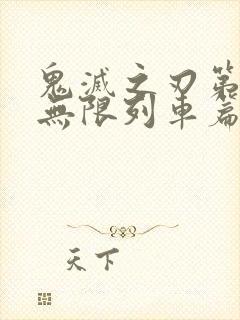 鬼滅之刃第
無限列車篇
天下